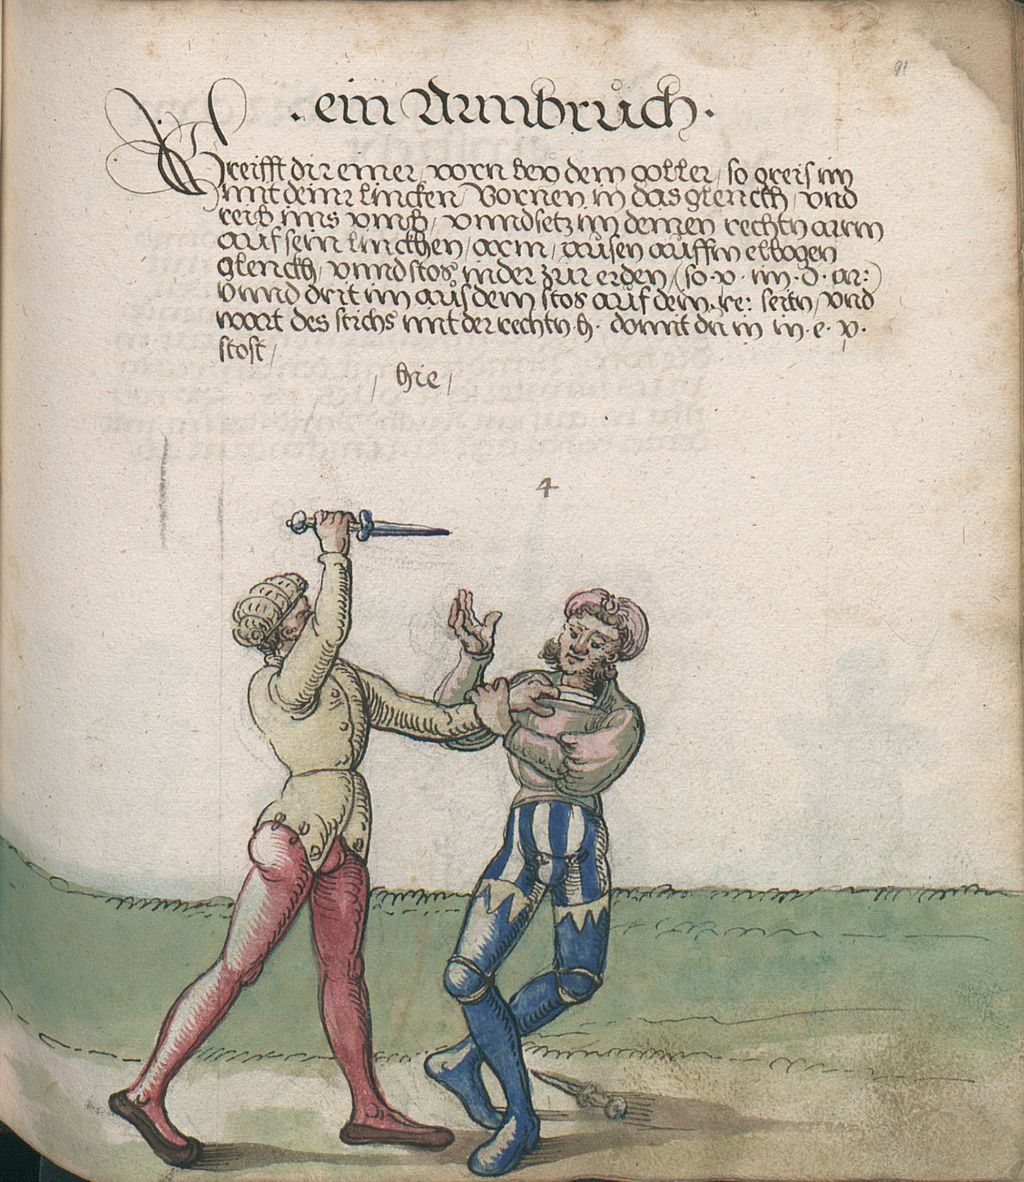 91
· ein Armbrůch ·
Greifft dir einer vorn beӱ dem goller / so greif im
mit deiner lincken / Vornen in das glenckh / vnd
reiß ims vmb / vnnd setz im deinen rechtn arm
auf sein linckhen / arm / aůsen aůff in elbogen
glenckh / vnnd stos in der zur erden / (so v · im · d · ar:)
vnnd drit im aůs dem stos auf dein · re: seitn / vnd
wart des stichs mit der rechtn h · damit du in in · e · v ·
stost /
/ hie /
4